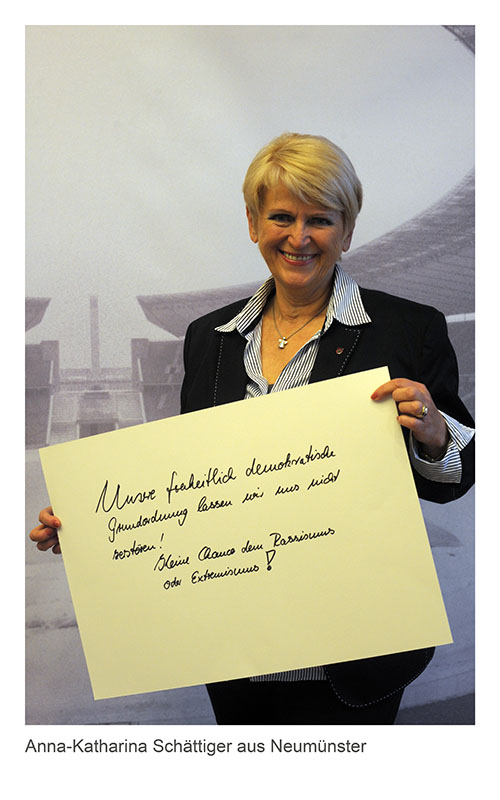 Unsre freiheitlich demokratische
Grundordnung lassen wir uns nicht
zerstören!
Keine Chance dem Rassismus
oder Extremismus!
Anna-Katharina Schättiger aus Neumünster